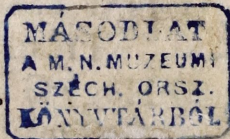 MÁSODLAT
A M. N. MUZEUMI
SZÉCH. ORSZ.
KÖNYVTÁRBÓL